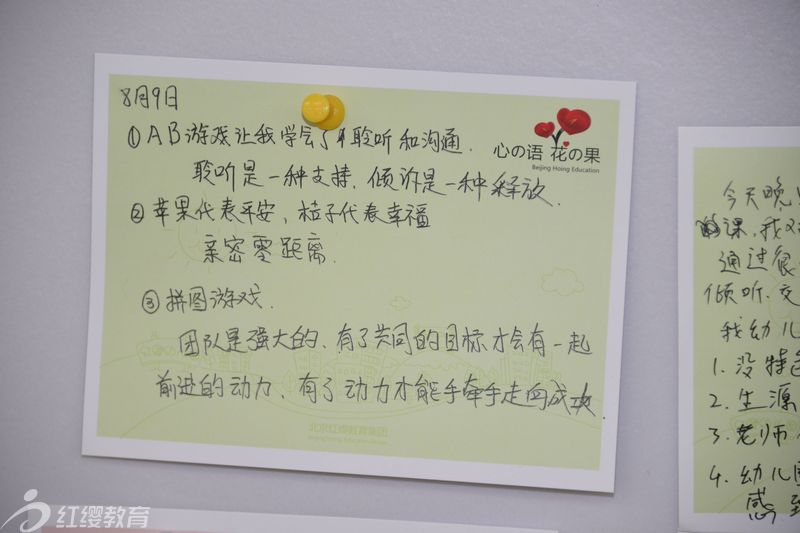 8月9日
①AB游戏让我学会了聆听和沟通.
聆听是一种支持,倾诉是一种释放.
②苹果代表平安,桔子代表幸福
亲密零距离.
③拼图游戏.
团队是强大的,有了共同的目标才会有一起
前进的动力,有了动力才能手牵手走向成功
心の语 花の果
Beijing Hoing Education
北京红缨教育集团
今天晚
课,我又
通过很
倾听.交
我幼儿
1.没特色
2.生源
3.老师
4.幼儿园
感到
红缨教育